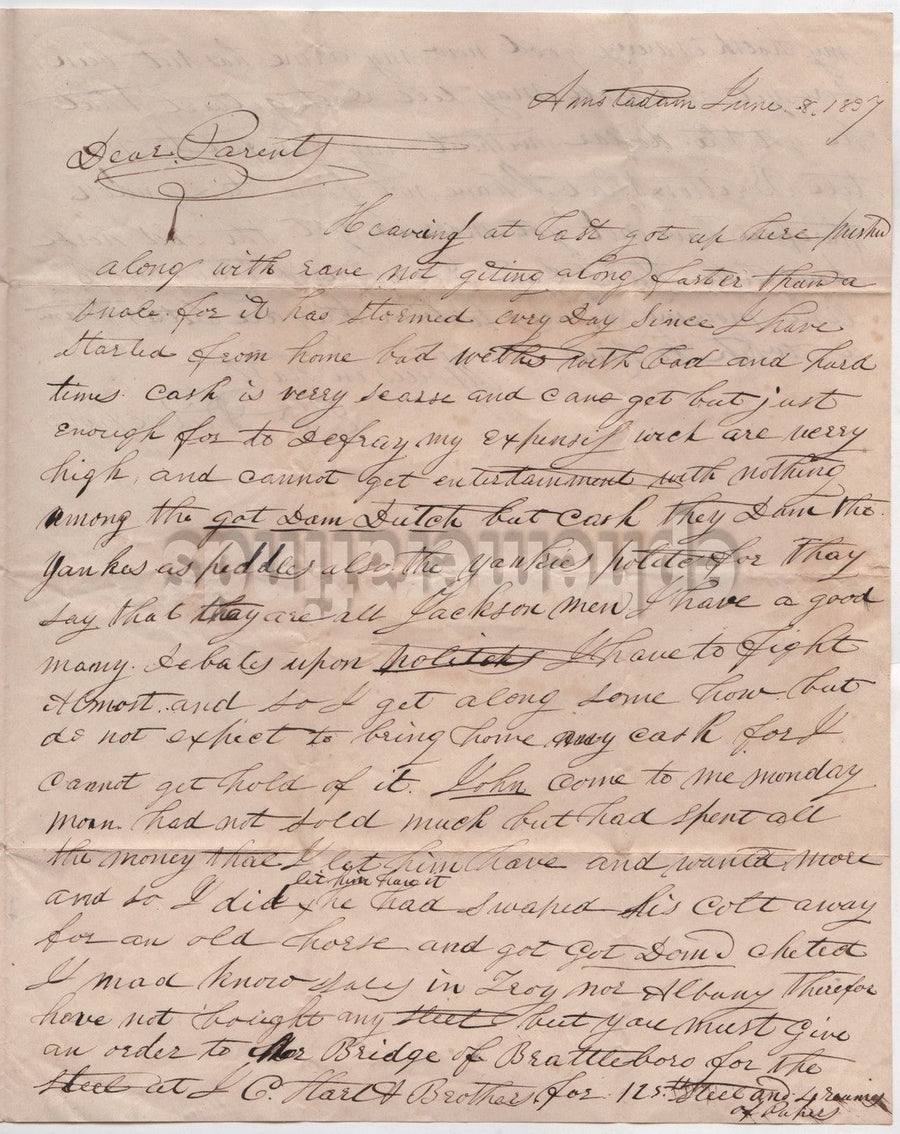 Amstadam June 8, 1837
Dear Parents
Heaving at last got up here pushd
along with rave not giting along faster than a
snale for it has stormed evry Day since I have
started from home bad wether with bad and hard
times cash is verry scarse and cane get but just
enough for to defray my expenses wich are verry
high, and cannot get entertainment with nothing
among the got Dam Dutch but cash they Dam the
Yankes as peddles also the yankies polites for thay
say that they are all Jackson men I have a good
many debates upon politicks I have to fight
Almost and so I get along some how but
do not expect to bring home any cash for I
cannot get hold of it. John come to me monday
morn had not sold much but had spent all
the money that I let him have and wanted more
let him have it
and so I did x he had swaped his colt away
for an old horse and got Got Dom'd cheted
I mad know sales in Troy nor Albany therefor
have not bought any steel but you must give
an order to Mr Bridge of Brattleboro for the
steel at J C. Hart & Brothers for 125 lb steel and 4 reaimes
of Papers
ephemerafinds